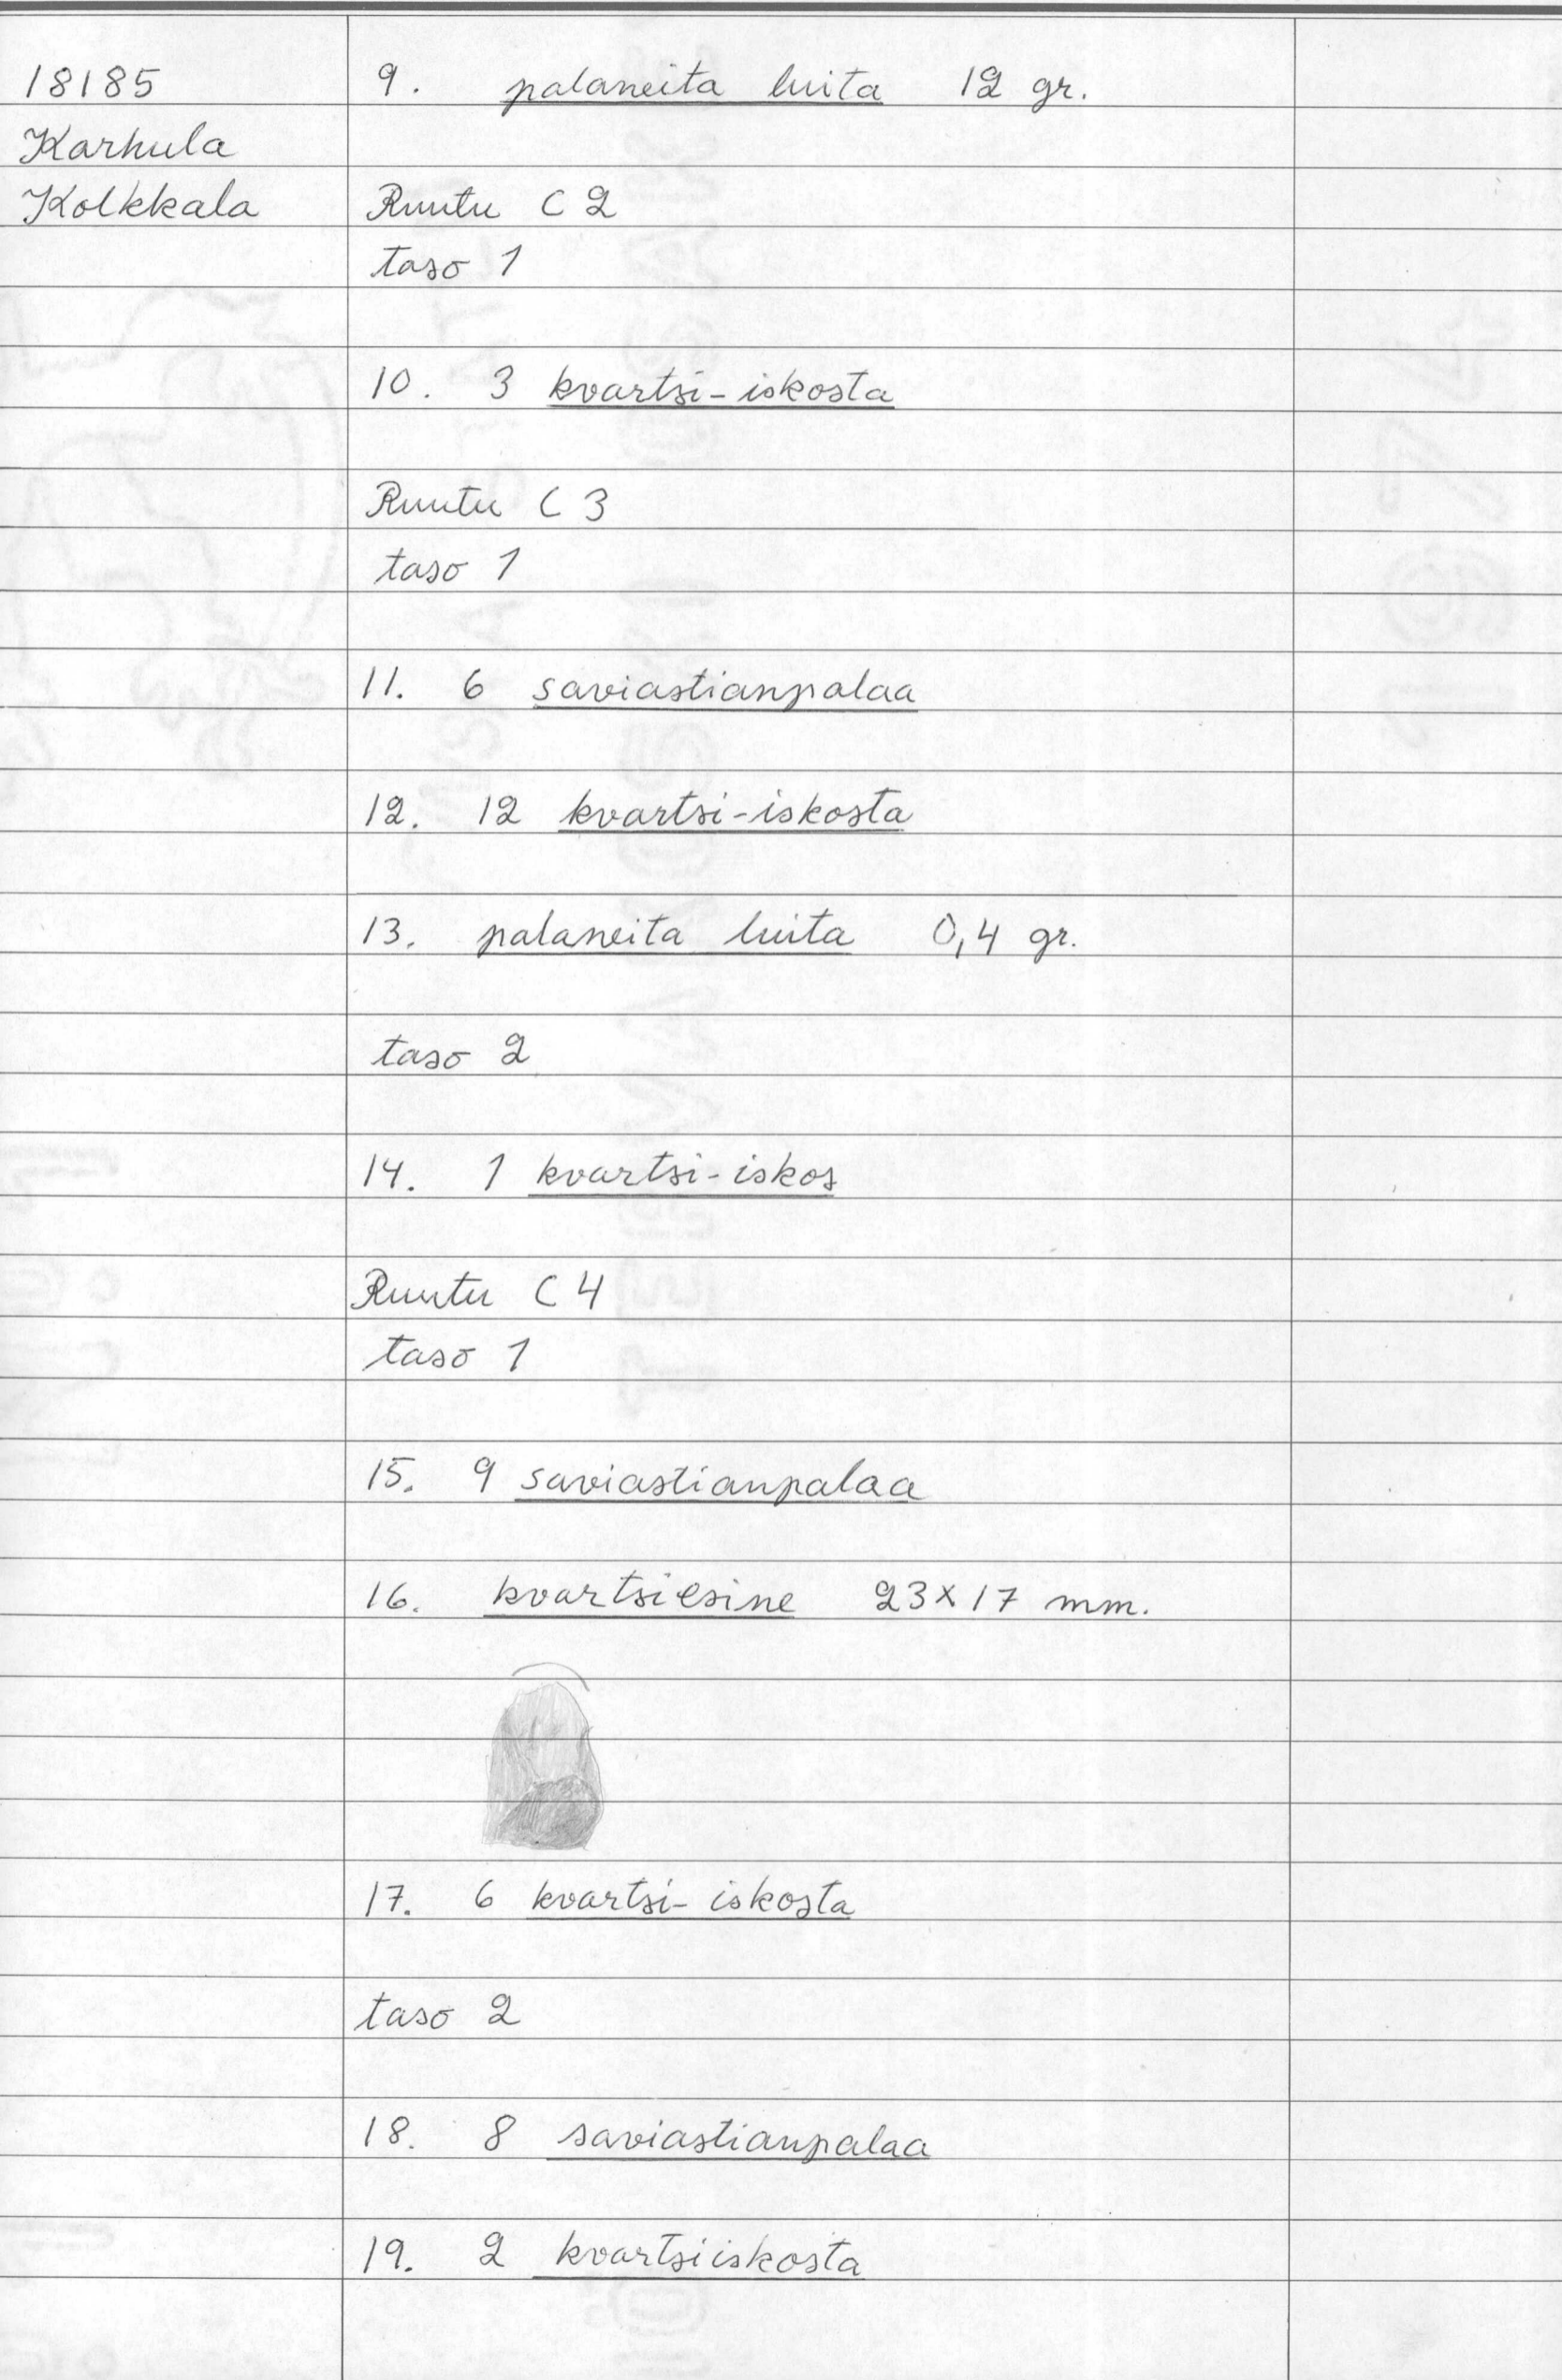 18185
Karhula
Kolkkala
9. palaneita luita 12 gr.
Ruutu C 2
taso 1
10. 3 kvartsi-iskosta
Ruutu C 3
taso 1
11. 6 saviastianpalaa
12. 12 kvartsi-iskosta
13. palaneita luita 0,4 gr.
taso 2
14. 1 kvartsi-iskos
Ruutu C 4
taso 1
15. 9 saviastianpalaa
16. kvartsiesine 23x17 mm.
17. 6 kvartsi-iskosta
taso 2
18. 8 saviastianpalaa
19. 2 kvartsiiskosta